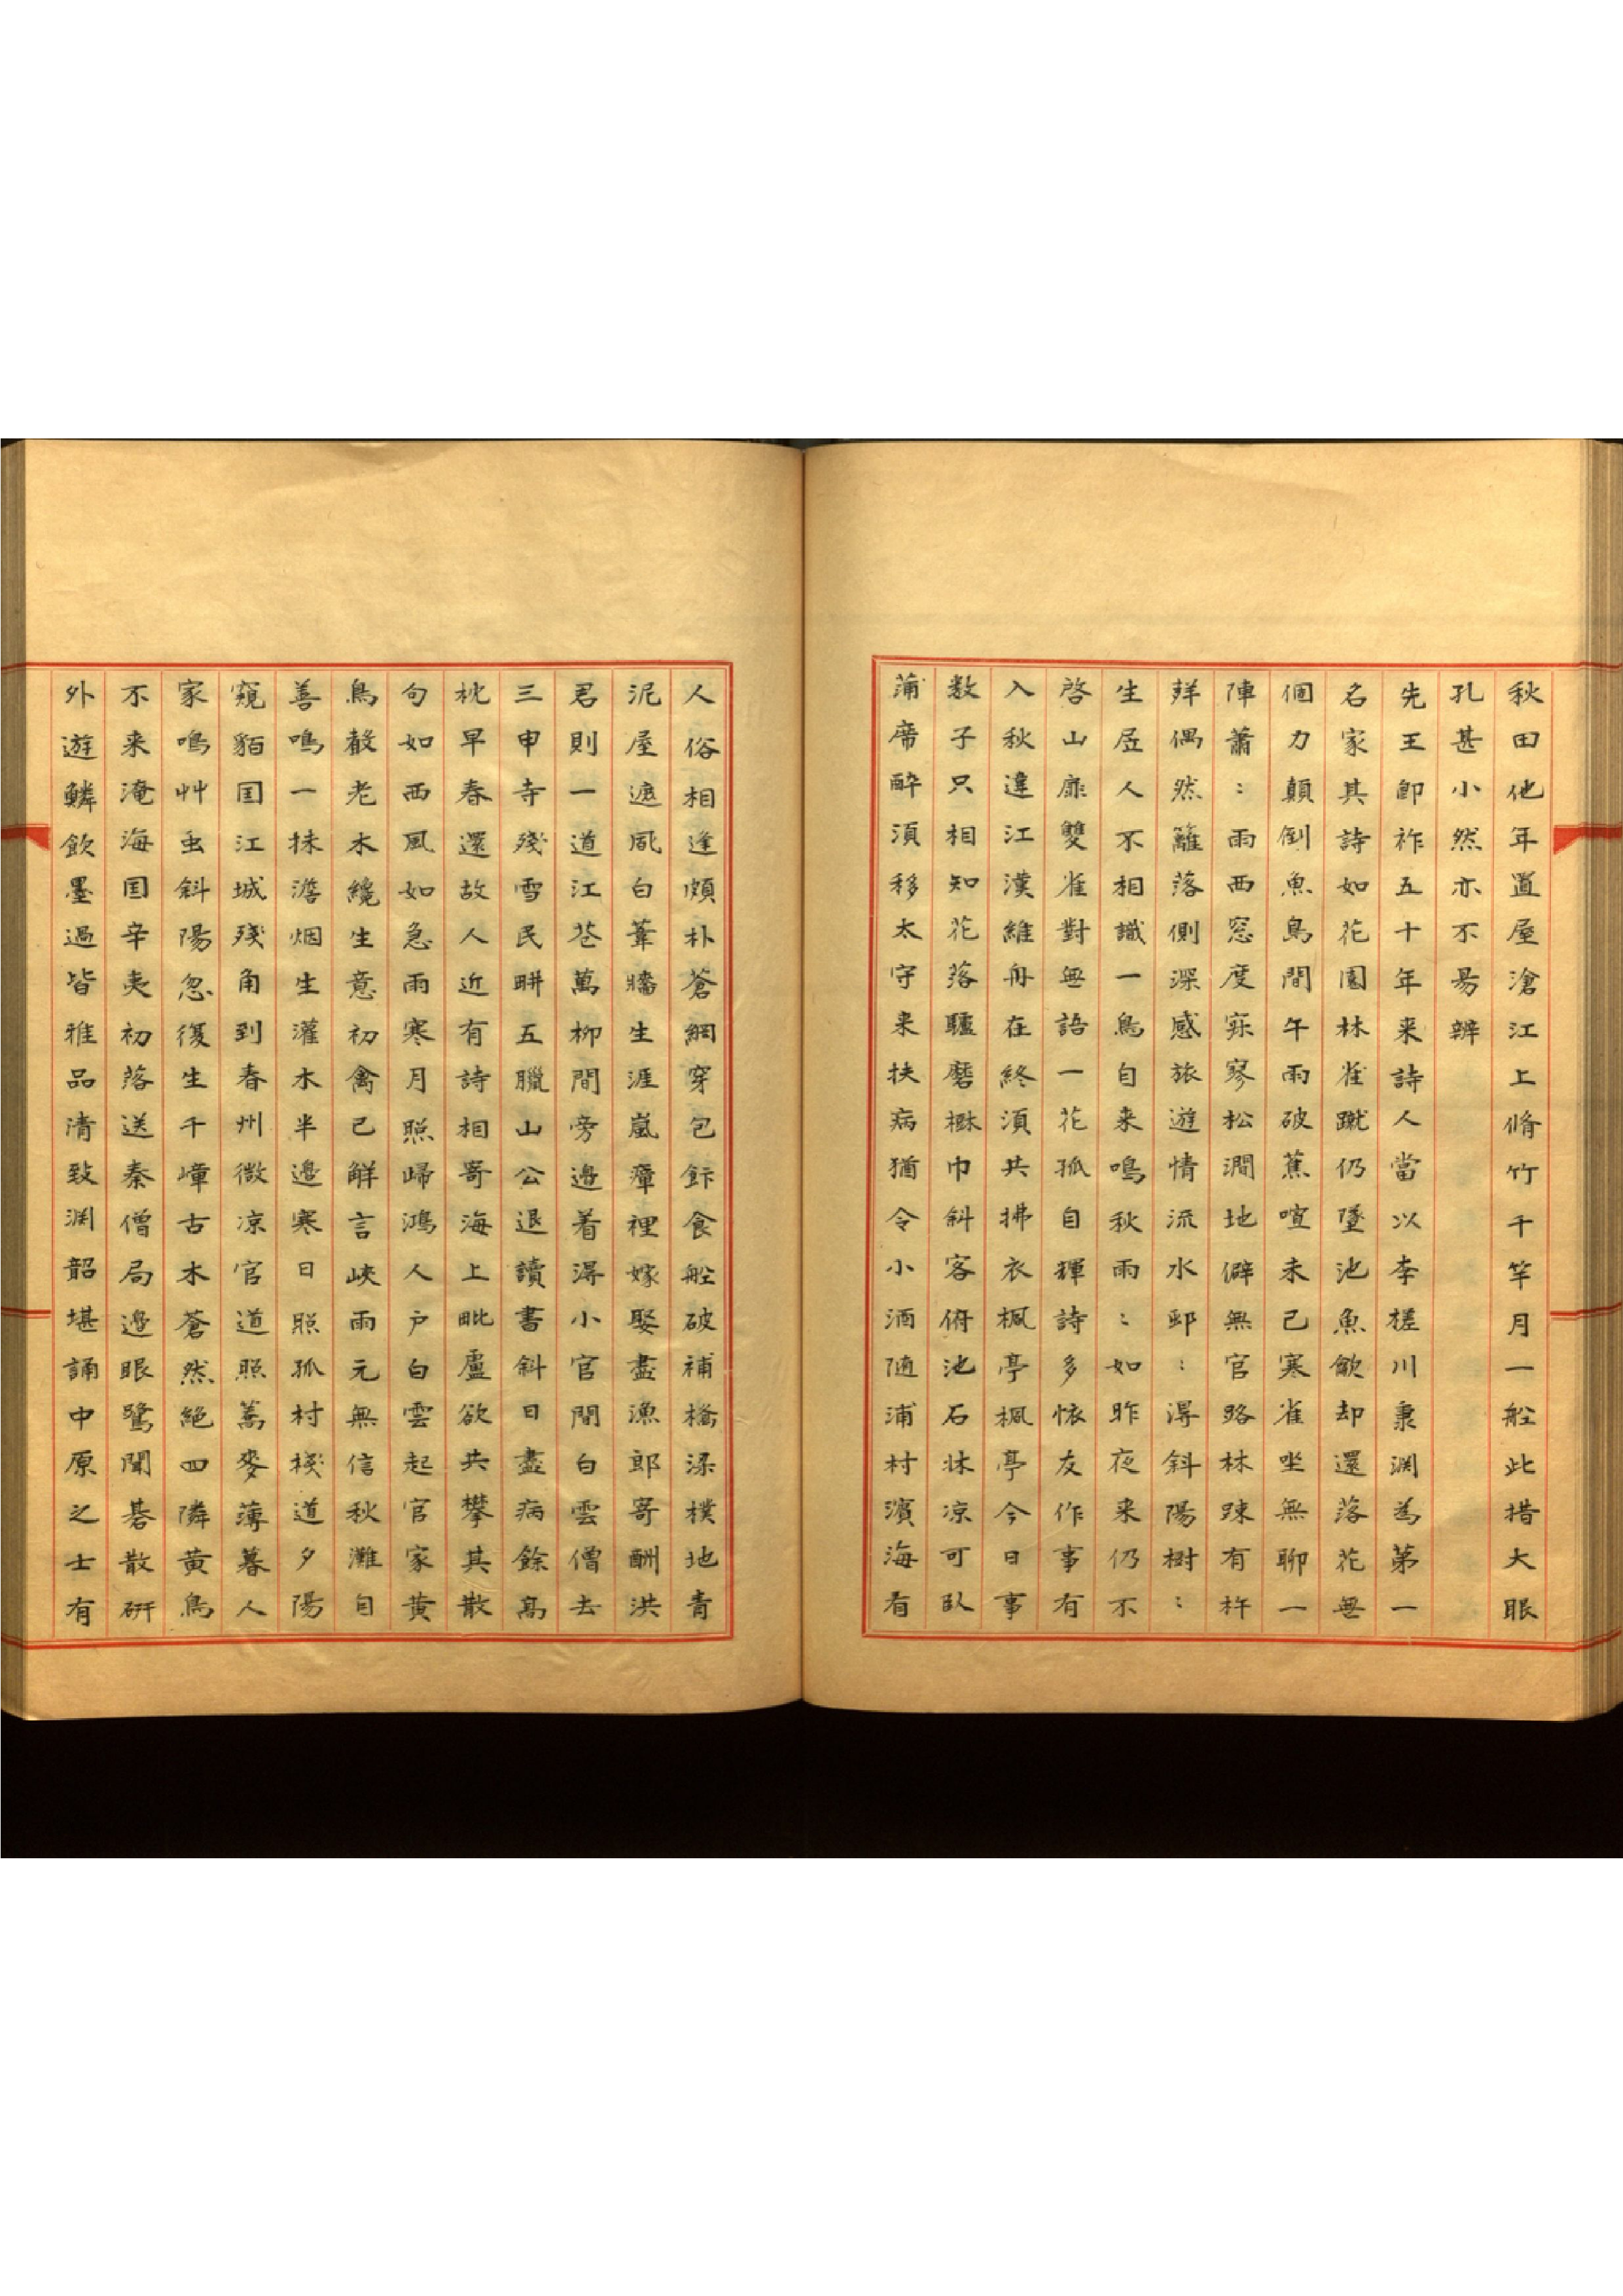 秋田他年置屋滄江上脩竹千竿月一船此措大眼
孔甚小然亦不易辨
先王卽祚五十年来詩人當以李槎川秉渊為第一
名家其詩如花園林雀蹴仍墜池魚歠却還落花無
個力顛倒魚鳥間午雨破蕉喧未已寒雀坐無聊一
陣蕭〻雨西窓度寂寥松澗地僻無官路林踈有杵
拜偶然籬落側深感旅遊情流水郵〻淂斜陽樹〻
生居人不相識一鳥自来鳴秋雨〻如昨夜来仍不
啓山扉雙雀對無語一花孤自輝詩多恠友作事有
入秋違江漢維舟在終湏共拂衣楓亭楓亭今日事
数子只相知花落驢磨楙巾斜客俯池石牀凉可臥
蒲席醉湏移太守来扶病猶令小酒随浦村濱海有
人俗相逢頗朴蒼網穿包飰食舩破補橋梁樸地青
泥屋遮風白葦牆生涯嵐瘴裡嫁娶盡漁郎寄酬洪
君則一道江花萬柳間旁邊着淂小官間白雲僧去
三申寺殘雪民畊五臘山公退讀書斜日盡病餘高
枕早春還故人近有詩相寄海上毗盧欲共攀其散
句如西風如急雨寒月照歸鴻人户白雲起官家黄
鳥聲老木纔生意初禽已解言峽雨元無信秋灘自
善鳴一抹澹烟生灌木半邊寒日照孤村棧道夕陽
窺貊国江城殘角到春州微凉官道照蒿麥薄暮人
家鳴艸虫斜陽忽復生千嶂古木蒼然絶四隣黄鳥
不来淹海国辛夷初落送秦僧局邊眼鷺聞碁散硏
外遊鱗飲墨過皆雅品清致渊韶堪誦中原之士有